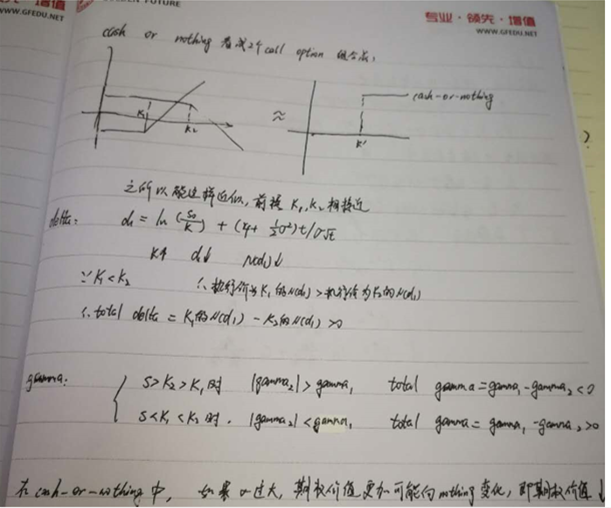 增值
DEN FUTURE
专业·领先·增值
WWW.GFEDU.NET
WWW.GFEDU.NET
cash or nothing 看成2个call option 组合成:
K₁ K₂ ≈ K' cash-or-nothing
之所以能这样近似, 前提 K₁, K₂ 相接近
delta: d₁ = ln (S₀/K) + (r+ ½σ²)t/σ√t
K↑ d₁↓ N(d₁)↓
∵ K₁<K₂ ∴ 执行价为K₁的N(d₁) > 执行价为K₂的N(d₁)
∴ total delta = K₁的N(d₁) - K₂的N(d₁) >0
gamma: S>K₂>K₁时 |gamma₂|>gamma₁ total gamma=gamma₁-gamma₂<0
S<K₁<K₂时. |gamma₂|<gamma₁ total gamma= gamma₁-gamma₂>0
在 cash-or-nothing 中, 如果σ过大, 期权价值更加可能向nothing变化, 即期权价值↓